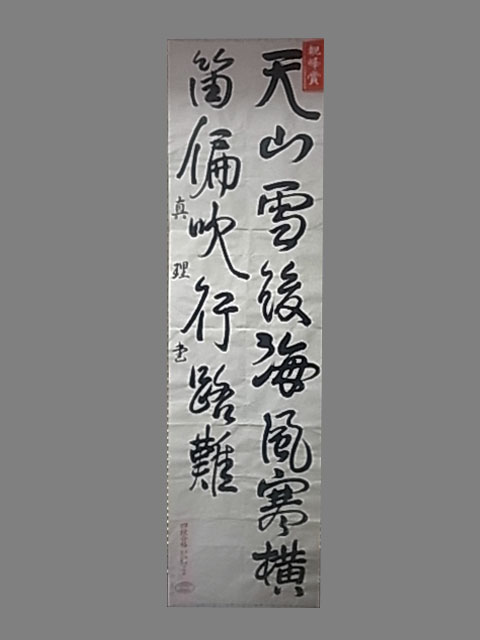 観峰賞
天山雪後海風寒横
笛偏吹行路難
真理書